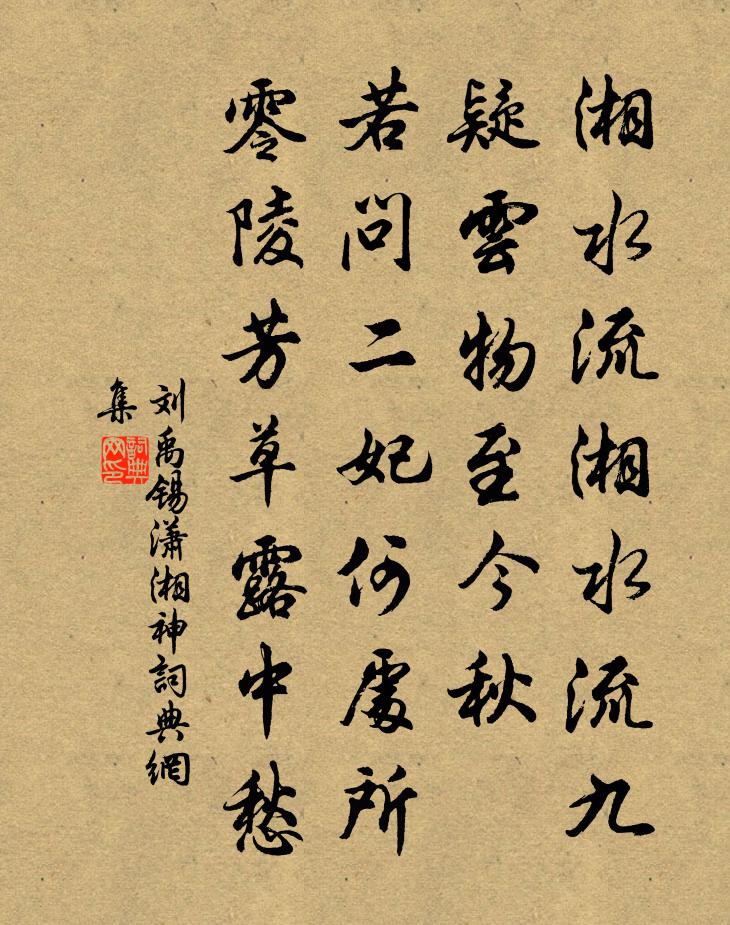 湘水流湘水流九
疑雲物至今秋
若問二妃何處所
零陵芳草露中愁
刘禹锡潇湘神詞典網
集
詞典
网印